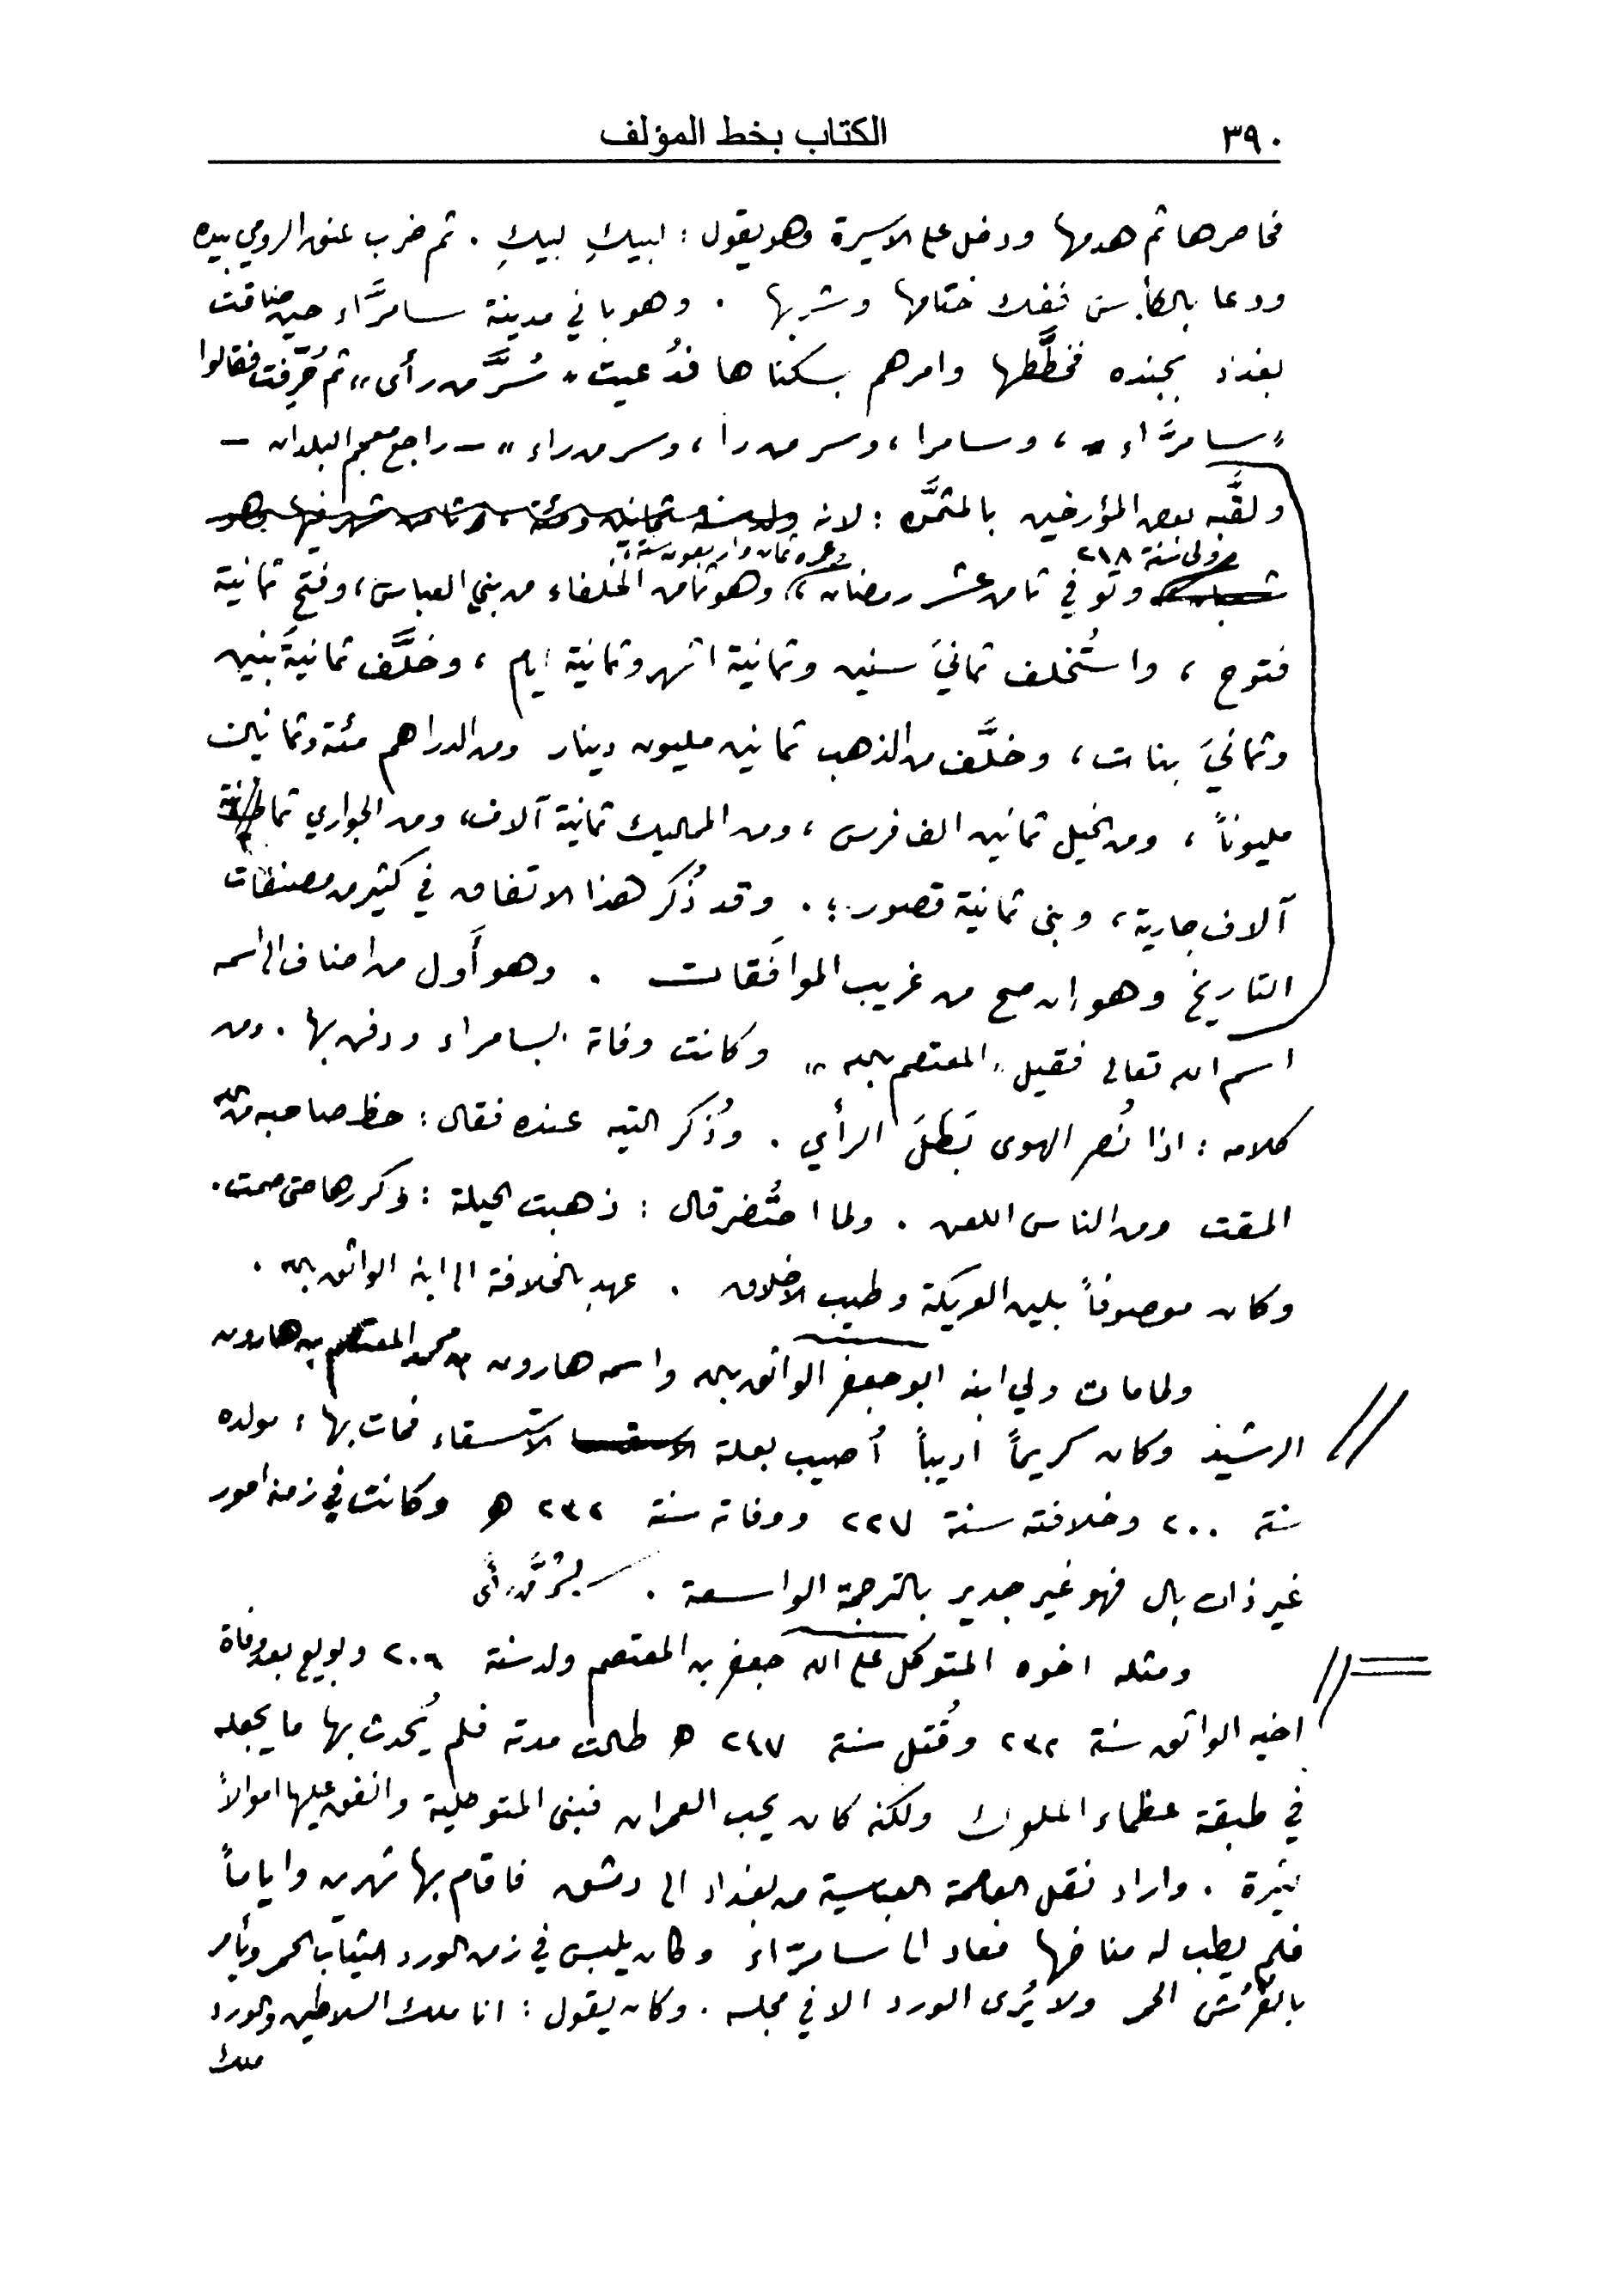 ٣٩٠ الكتاب بخط المؤلف
فحاصرها ثم هدمها ودخل على الاسيرة وهو يقول : لبيكِ لبيكِ . ثم ضرب عنق الرومي بيده
ودعا بالكأس ففك ختامها وشربها . وهو باني مدينة سامرَّاء حين ضاقت
بغداد بجنده فخطَّطها وامرهم بسكناها فدُعيت " سُرَّ من رأى " ثم حُرِّفت فقالوا
" سامرَّاء " ، وسامرا ، وسر من را ، وسر من راء " – راجع معجم البلدان –
ولقَّبه بعض المؤرخين بالمثمَّن : لانه ولد سنة ثمانين ومئة ، وثامن شهر فيها وهو
وولي سنة ٢١٨ وعمره ثمان واربعون سنة ،
شعبان وتوفي ثامن عشر رمضان ، وهو ثامن الخلفاء من بني العباس ، وفتح ثمانية
فتوح ، واستُخلف ثمانيَ سنين وثمانية اشهر وثمانية ايام ، وخلَّف ثمانيةَ بنين
وثمانيَ بنات ، وخلَّف من الذهب ثمانين مليون دينار ومن الدراهم مئة وثمانين
مليوناً ، ومن الخيل ثمانين الف فرس ، ومن المماليك ثمانية آلاف ، ومن الجواري ثمانية
آلاف جارية ، وبنى ثمانية قصور . وقد ذُكر هذا الاتفاق في كثير من مصنفات
التاريخ وهو إن صح من غريب الموافَقات . وهو أَول من اضاف الى اسمه
اسم الله تعالى فقيل " المعتصم بالله " وكانت وفاته بسامراء ودفن بها . ومن
كلامه : اذا نُصر الهوى بَطَلَ الرأي . وذُكر التيه عنده فقال : حظ صاحبه من الله
المقت ومن الناس اللعن . ولما احتُضر قال : ذهبت الحيلة : وكررها حتى صمت .
وكان موصوفاً بلين العريكة وطيب الاخلاق . عهد بالخلافة الى ابنه الواثق بالله .
ولما مات ولي ابنه ابو جعفر الواثق بالله واسمه هارون بن محمد المعتصم بن هارون
الرشيد وكان كريماً اديباً أُصيب بعلة الاستسقاء فمات بها ، مولده
سنة ٢٠٠ وخلافته سنة ٢٢٧ ووفاته سنة ٢٣٢ ھ وكانت في زمنه امور
غير ذات بال فهو غير جدير بالترجمة الواسعة . بسُرَّ من رأى
ومثله اخوه المتوكل على الله جعفر بن المعتصم ولد سنة ٢٠٦ وبويع بعد وفاة
اخيه الواثق سنة ٢٣٢ وقُتل سنة ٢٤٧ ھ طالت مدته فلم يُحدث بها ما يجعله
في طبقة عظماء الملوك ولكنه كان يحب العمران فبنى المتوكلية وانفق عليها اموالاً
كثيرة . واراد نقل العاصمة العباسية من بغداد الى دمشق فاقام بها شهرين واياماً
فلم يطب له مناخها فعاد الى سامرّاء وكان يلبس في زمن الورد الثياب الحمر ويأمر
بالفُرُش الحمر ولا يُرى الورد الا في مجلسه . وكان يقول : انا ملك السلاطين والورد
ملك